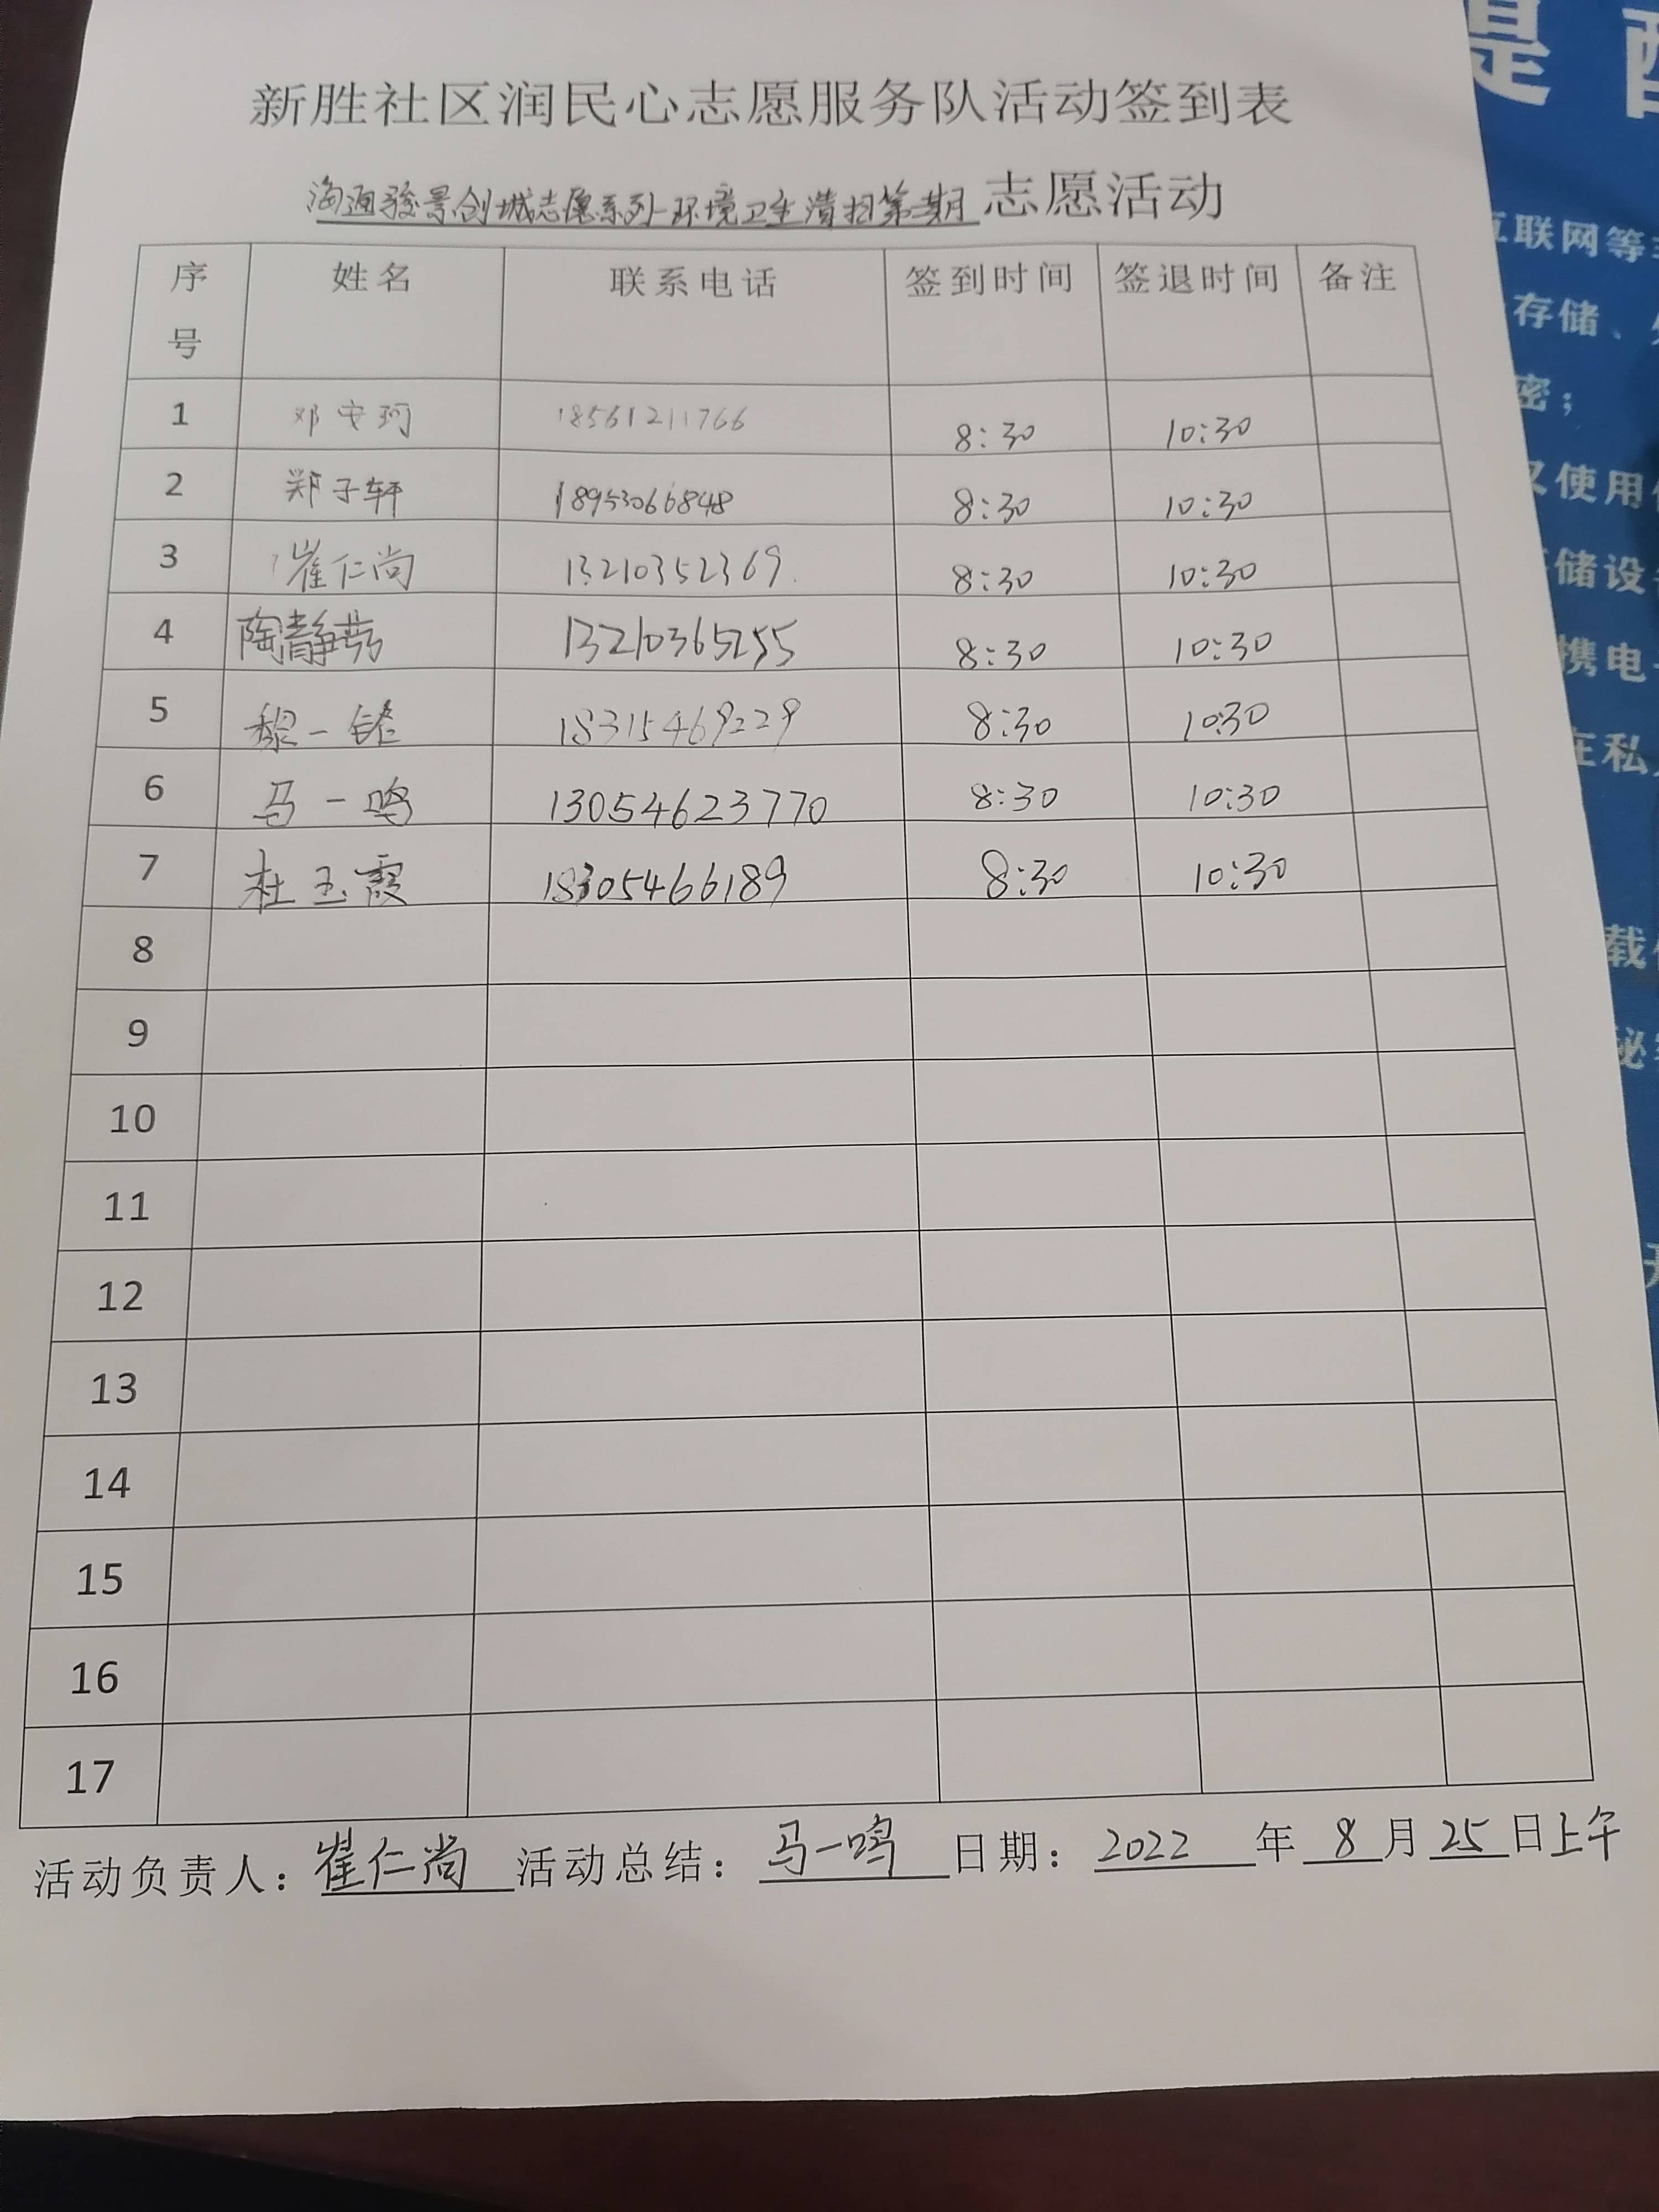 新胜社区润民心志愿服务队活动签到表
海通骏景创城志愿系列-环境卫生清扫第 期 志愿活动
序号 姓名 联系电话 签到时间 签退时间 备注
1 邓安珂 18561211766 8:30 10:30
2 郑子轩 18953066848 8:30 10:30
3 崔仁尚 13210352369 8:30 10:30
4 陶静 13210365255 8:30 10:30
5 一 18315469229 8:30 10:30
6 马一鸣 13054623770 8:30 10:30
7 杜玉霞 18305466189 8:30 10:30
8
9
10
11
12
13
14
15
16
17
活动负责人：崔仁尚 活动总结：马一鸣 日期：2022年8月25日上午
是
互联网等
存储、
密；
又使用
储设
携电
在私
载
秘